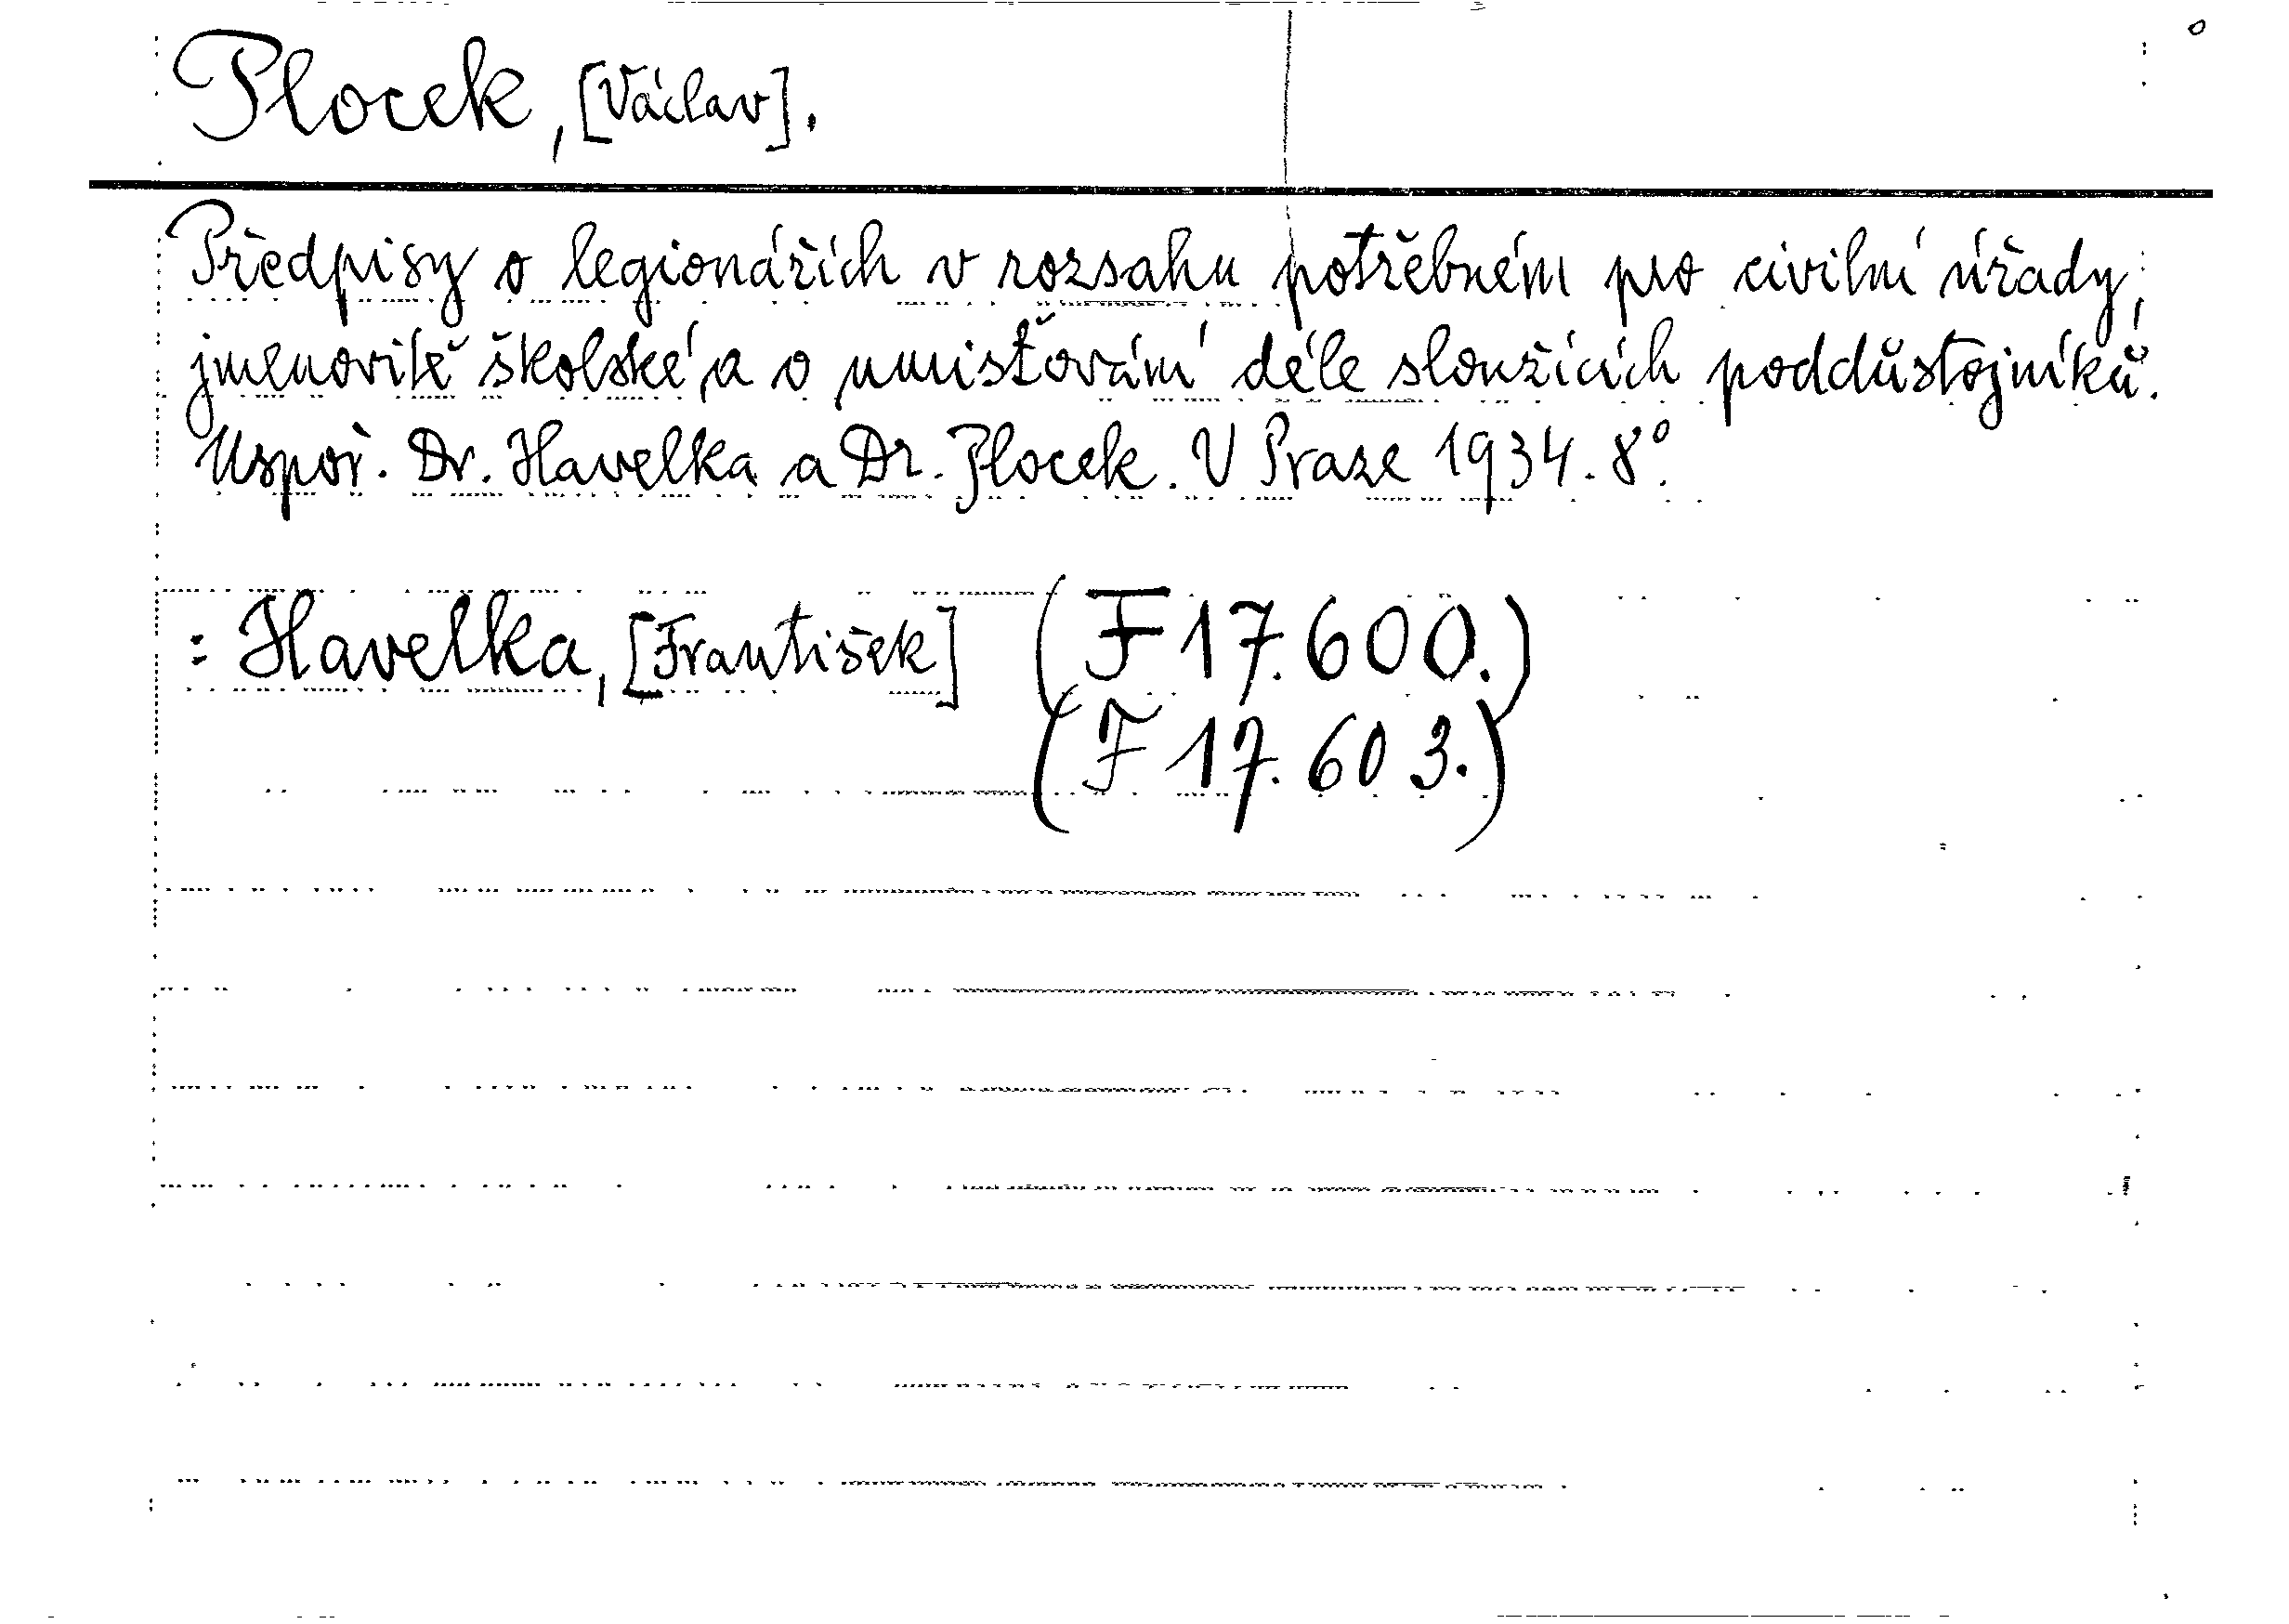 Plocek, [Václav].
Předpisy o legionářích v rozsahu potřebném pro civilní úřady,
jmenovitě školské, a o umisťování déle sloužících poddůstojníků.
Uspoř. Dr. Havelka a Dr. Plocek. V Praze 1934. 8°.
: Havelka, [František] (F 17.600.)
(F 17.603.)